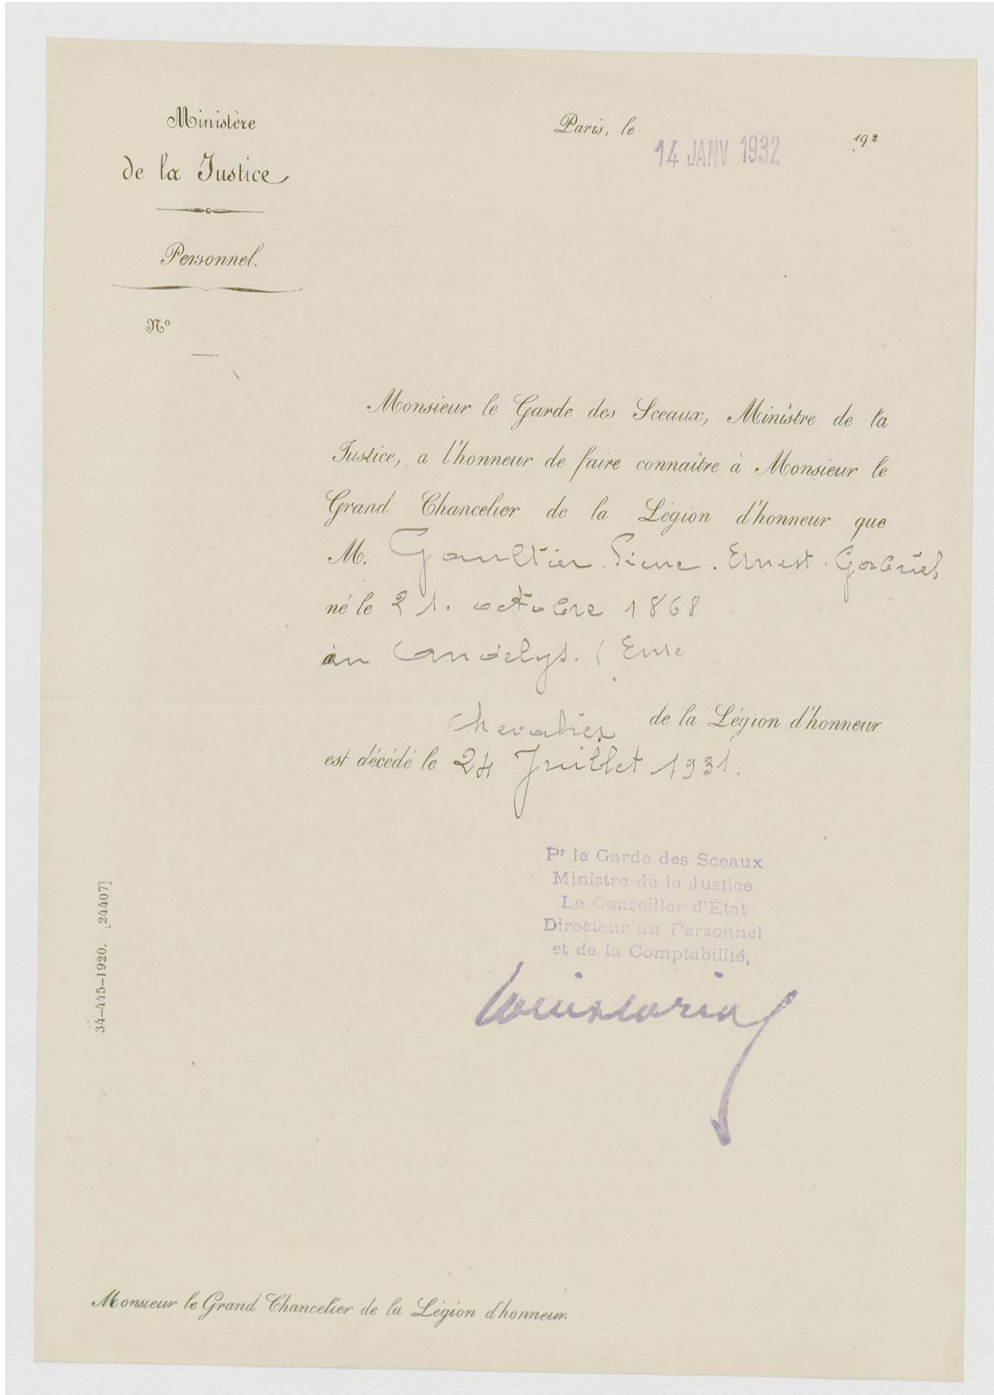 Ministère
de la Justice
Personnel.
Nº
Paris, le 14 JANV 1932 192
Monsieur le Garde des Sceaux, Ministre de la
Justice, a l'honneur de faire connaître à Monsieur le
Grand Chancelier de la Légion d'honneur que
M. Gaultier. Pierre. Ernest. Gabriel
né le 21. octobre 1868
an Andelys. (Eure
Chevalier de la Légion d'honneur
est décédé le 24 Juillet 1931.
Pr le Garde des Sceaux
Ministre de la Justice
Le Conseiller d'État
Directeur du Personnel
et de la Comptabilité,
34-445-1920. [24407]
Monsieur le Grand Chancelier de la Légion d'honneur.